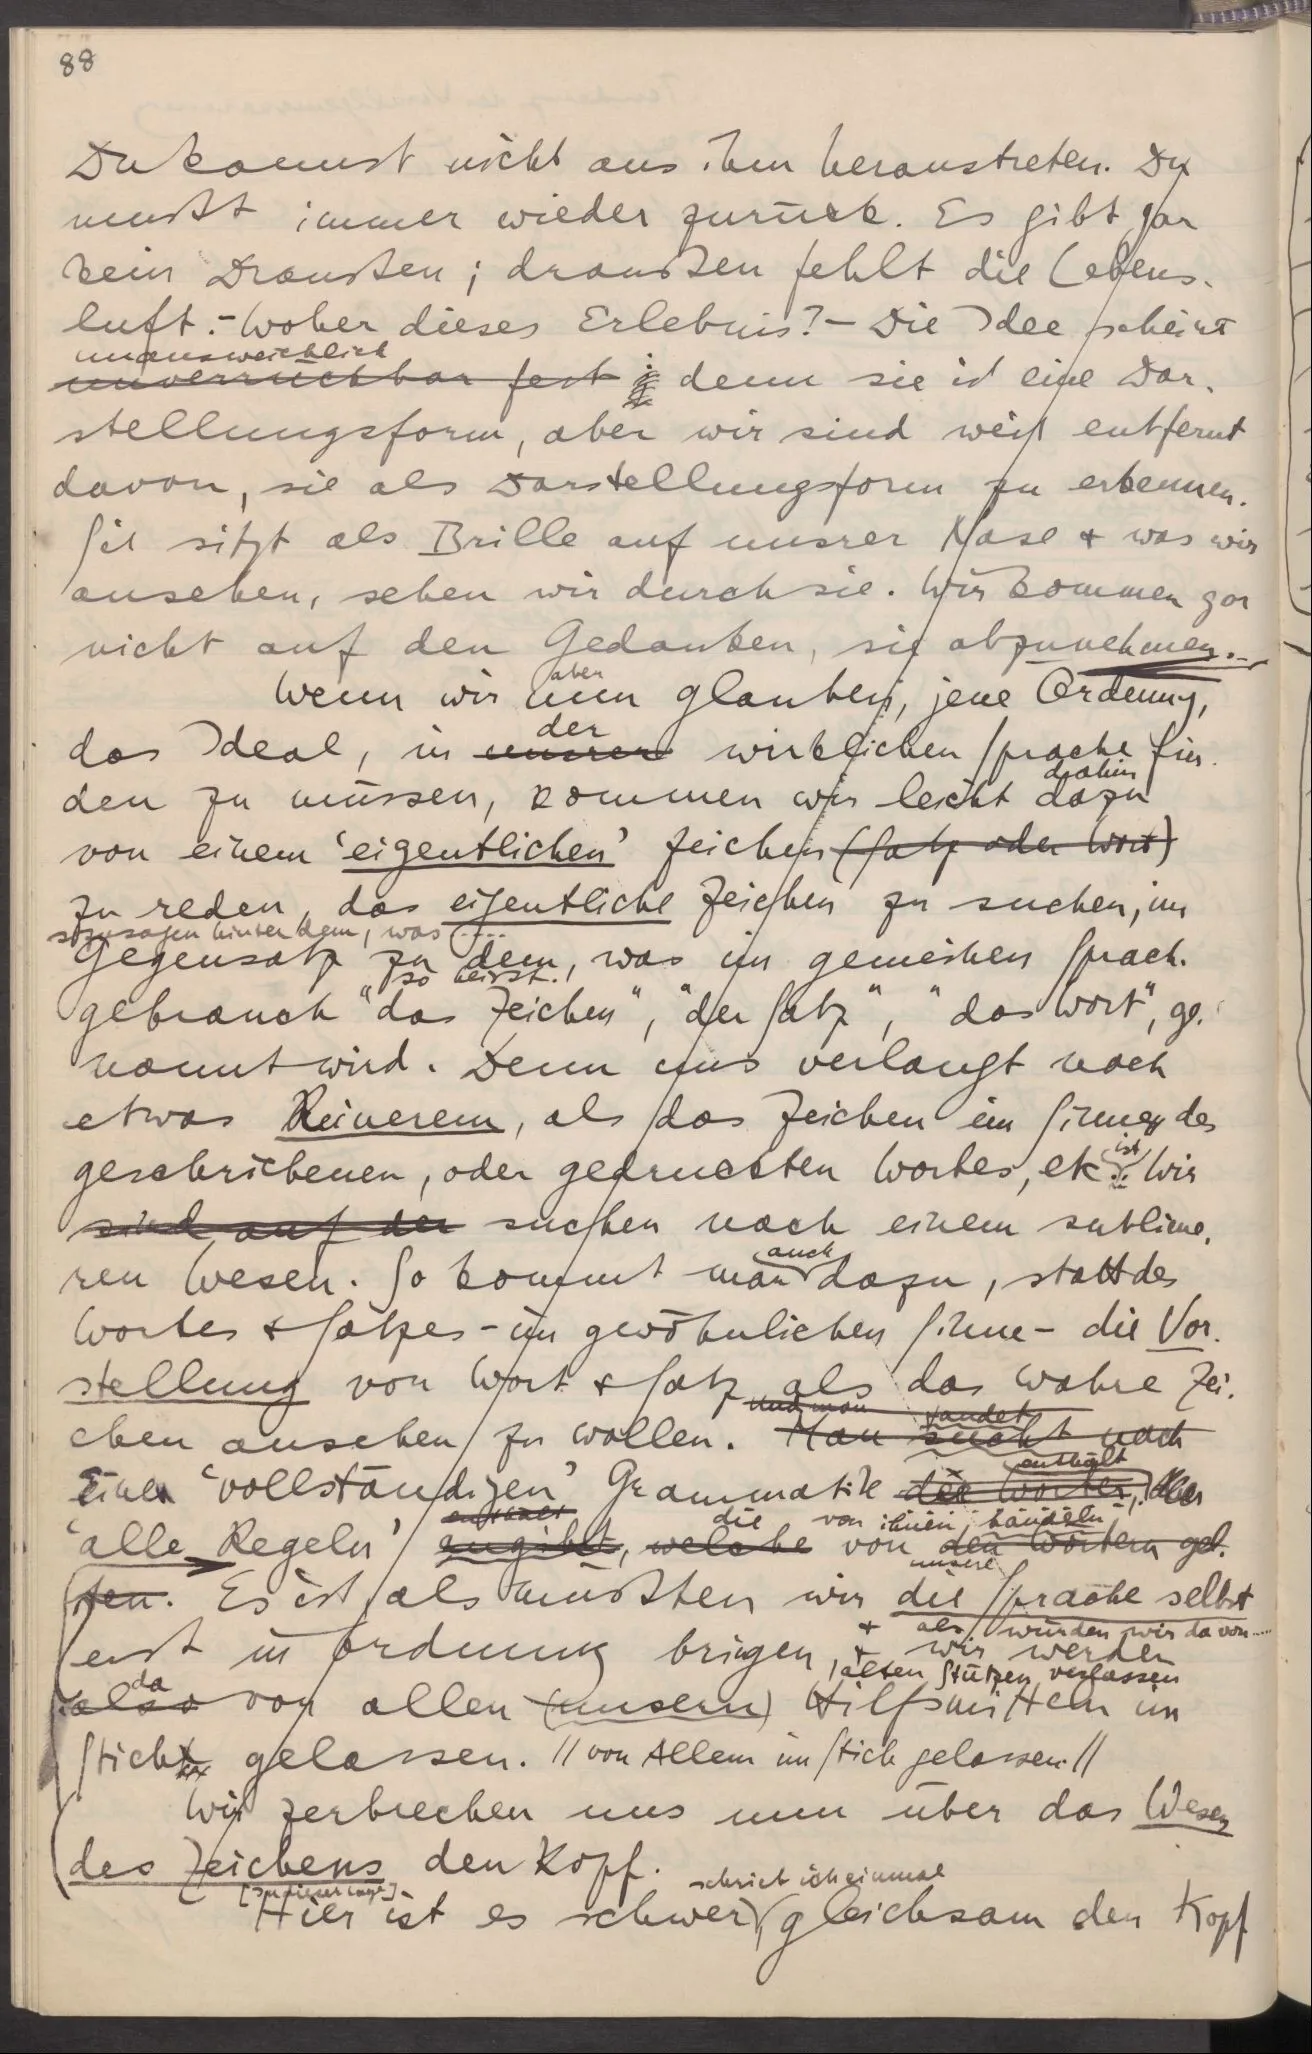 88
Du kannst nicht aus ihm heraustreten. Du
mußt immer wieder zurück. Es gibt gar
kein Draußen; draußen fehlt die Lebens-
luft. – Woher dieses Erlebnis? – Die Idee scheint
unausweichlich
unverrückbar fest ; denn sie ist eine Dar-
stellungsform, aber wir sind weit entfernt
davon, sie als Darstellungsform zu erkennen.
Sie sitzt als Brille auf unsrer Nase & was wir
ansehen, sehen wir durch sie. Wir kommen gar
nicht auf den Gedanken, sie abzunehmen. –
aber
Wenn wir nun glauben, jene Ordnung,
der
das Ideal, in unsrer wirklichen Sprache fin-
dahin
den zu müssen, kommen wir leicht dazu
von einem ‘eigentlichen’ Zeichen (Satz oder Wort)
zu reden, das eigentliche Zeichen zu suchen, im
sozusagen hinter dem, was .....
Gegensatz zu dem, was im gemeinen Sprach-
so heisst.
gebrauch “das Zeichen”, “der Satz”, “das Wort”, ge-
nannt wird. Denn uns verlangt nach
etwas Reinerem, als das Zeichen im Sinne des
ist
geschriebenen, oder gedruckten Wortes, etc. Wir
sind auf der suchen nach einem sublime-
auch
ren Wesen. So kommt man dazu, statt des
Wortes & Satzes – im gewöhnlichen Sinne – die Vor-
stellung von Wort & Satz als das wahre Zei-
und man fandet
chen ansehen zu wollen. Man sucht nach
enthält
einer ‘vollständigen’ Grammatik der Wörter, die
enthält die von ihnen handeln
‘alle Regeln’ angibt, welche von den Wörtern gel-
unsere
ten. Es ist als müßten wir die Sprache selbst
& als würden wir da von ....
erst in Ordnung bringen, & wir werden
da alten Stützen verlassen
also von allen (unsern) Hilfsmitteln im
Stich gelassen. // von Allem im Stich gelassen. //
Wir zerbrechen uns nun über das Wesen
des Zeichens den Kopf.
[In dieser Lage] schrieb ich einmal
Hier ist es schwer, gleichsam den Kopf